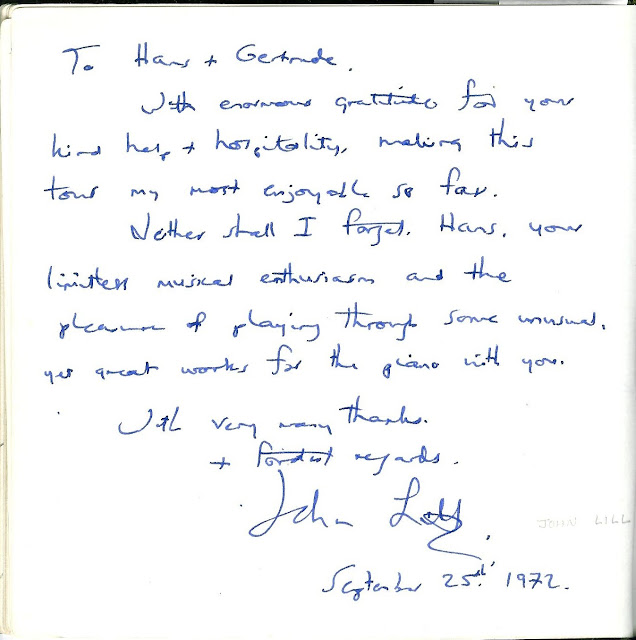 To Hans + Gertrude.
With enormous gratitude for your
kind help + hospitality, making this
tour my most enjoyable so far.
Neither shall I forget, Hans, your
limitless musical enthusiasm and the
pleasure of playing through some unusual,
yet great works for the piano with you.
With very many thanks.
+ fondest regards.
John Lill
JOHN LILL
September 25th 1972.